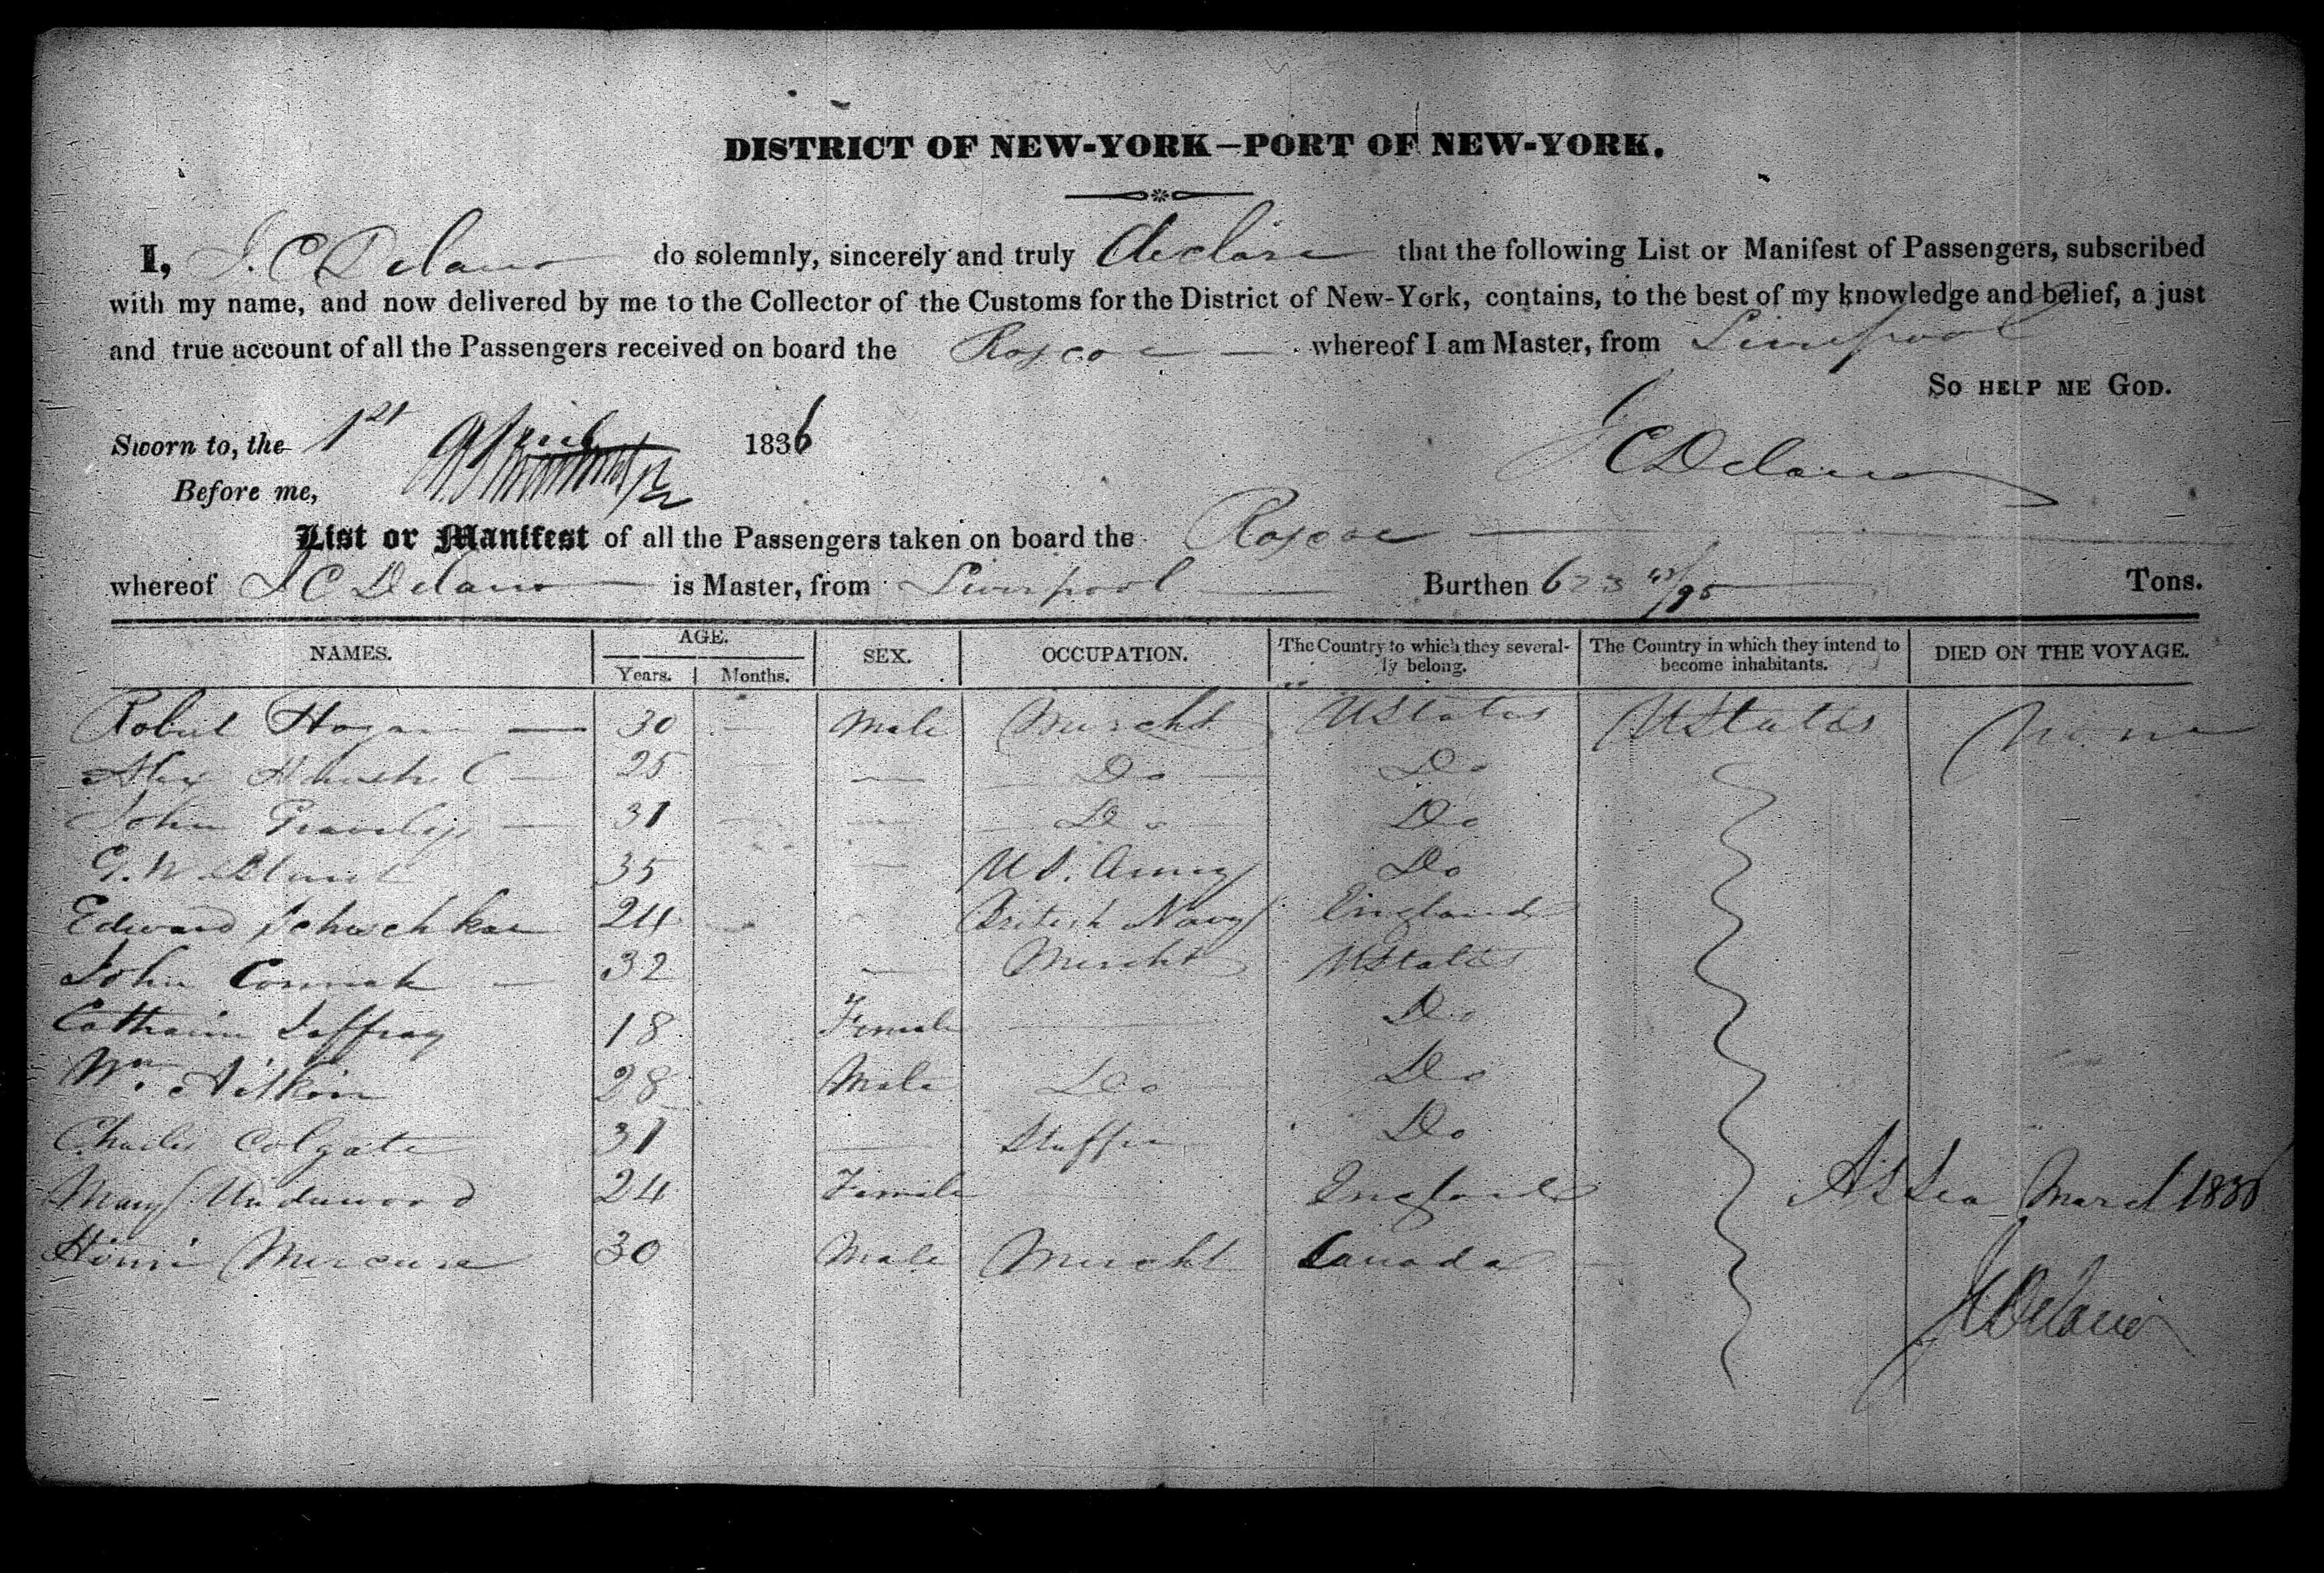 DISTRICT OF NEW-YORK—PORT OF NEW-YORK.
I, J. C Delano do solemnly, sincerely and truly declare that the following List or Manifest of Passengers, subscribed
with my name, and now delivered by me to the Collector of the Customs for the District of New-York, contains, to the best of my knowledge and belief, a just
and true account of all the Passengers received on board the Roscoe whereof I am Master, from Liverpool
So HELP ME GOD.
Sworn to, the 1st April 1836
J C Delano
Before me,
List or Manifest of all the Passengers taken on board the Roscoe
whereof J C Delano is Master, from Liverpool Burthen 623 /95 Tons.
NAMES. AGE. SEX. OCCUPATION. The Country to which they several- The Country in which they intend to DIED ON THE VOYAGE.
Years. Months. ly belong. become inhabitants.
Robert Hogan 30 Male Mercht UStates UStates None
Alex 25 Do Do
John 31 Do Do
G. W. 35 US. Army Do
Edward 24 British Navy England
John Cormack 32 Mercht UStates
Catharine Jaffray 18 Female Do
Wm. Aitkin 28 Male Do Do
Charles Colgate 31 Do
Mary Underwood 24 Female England At Sea March 1836
Henri Mercure 30 Male Mercht Canada
J C Delano